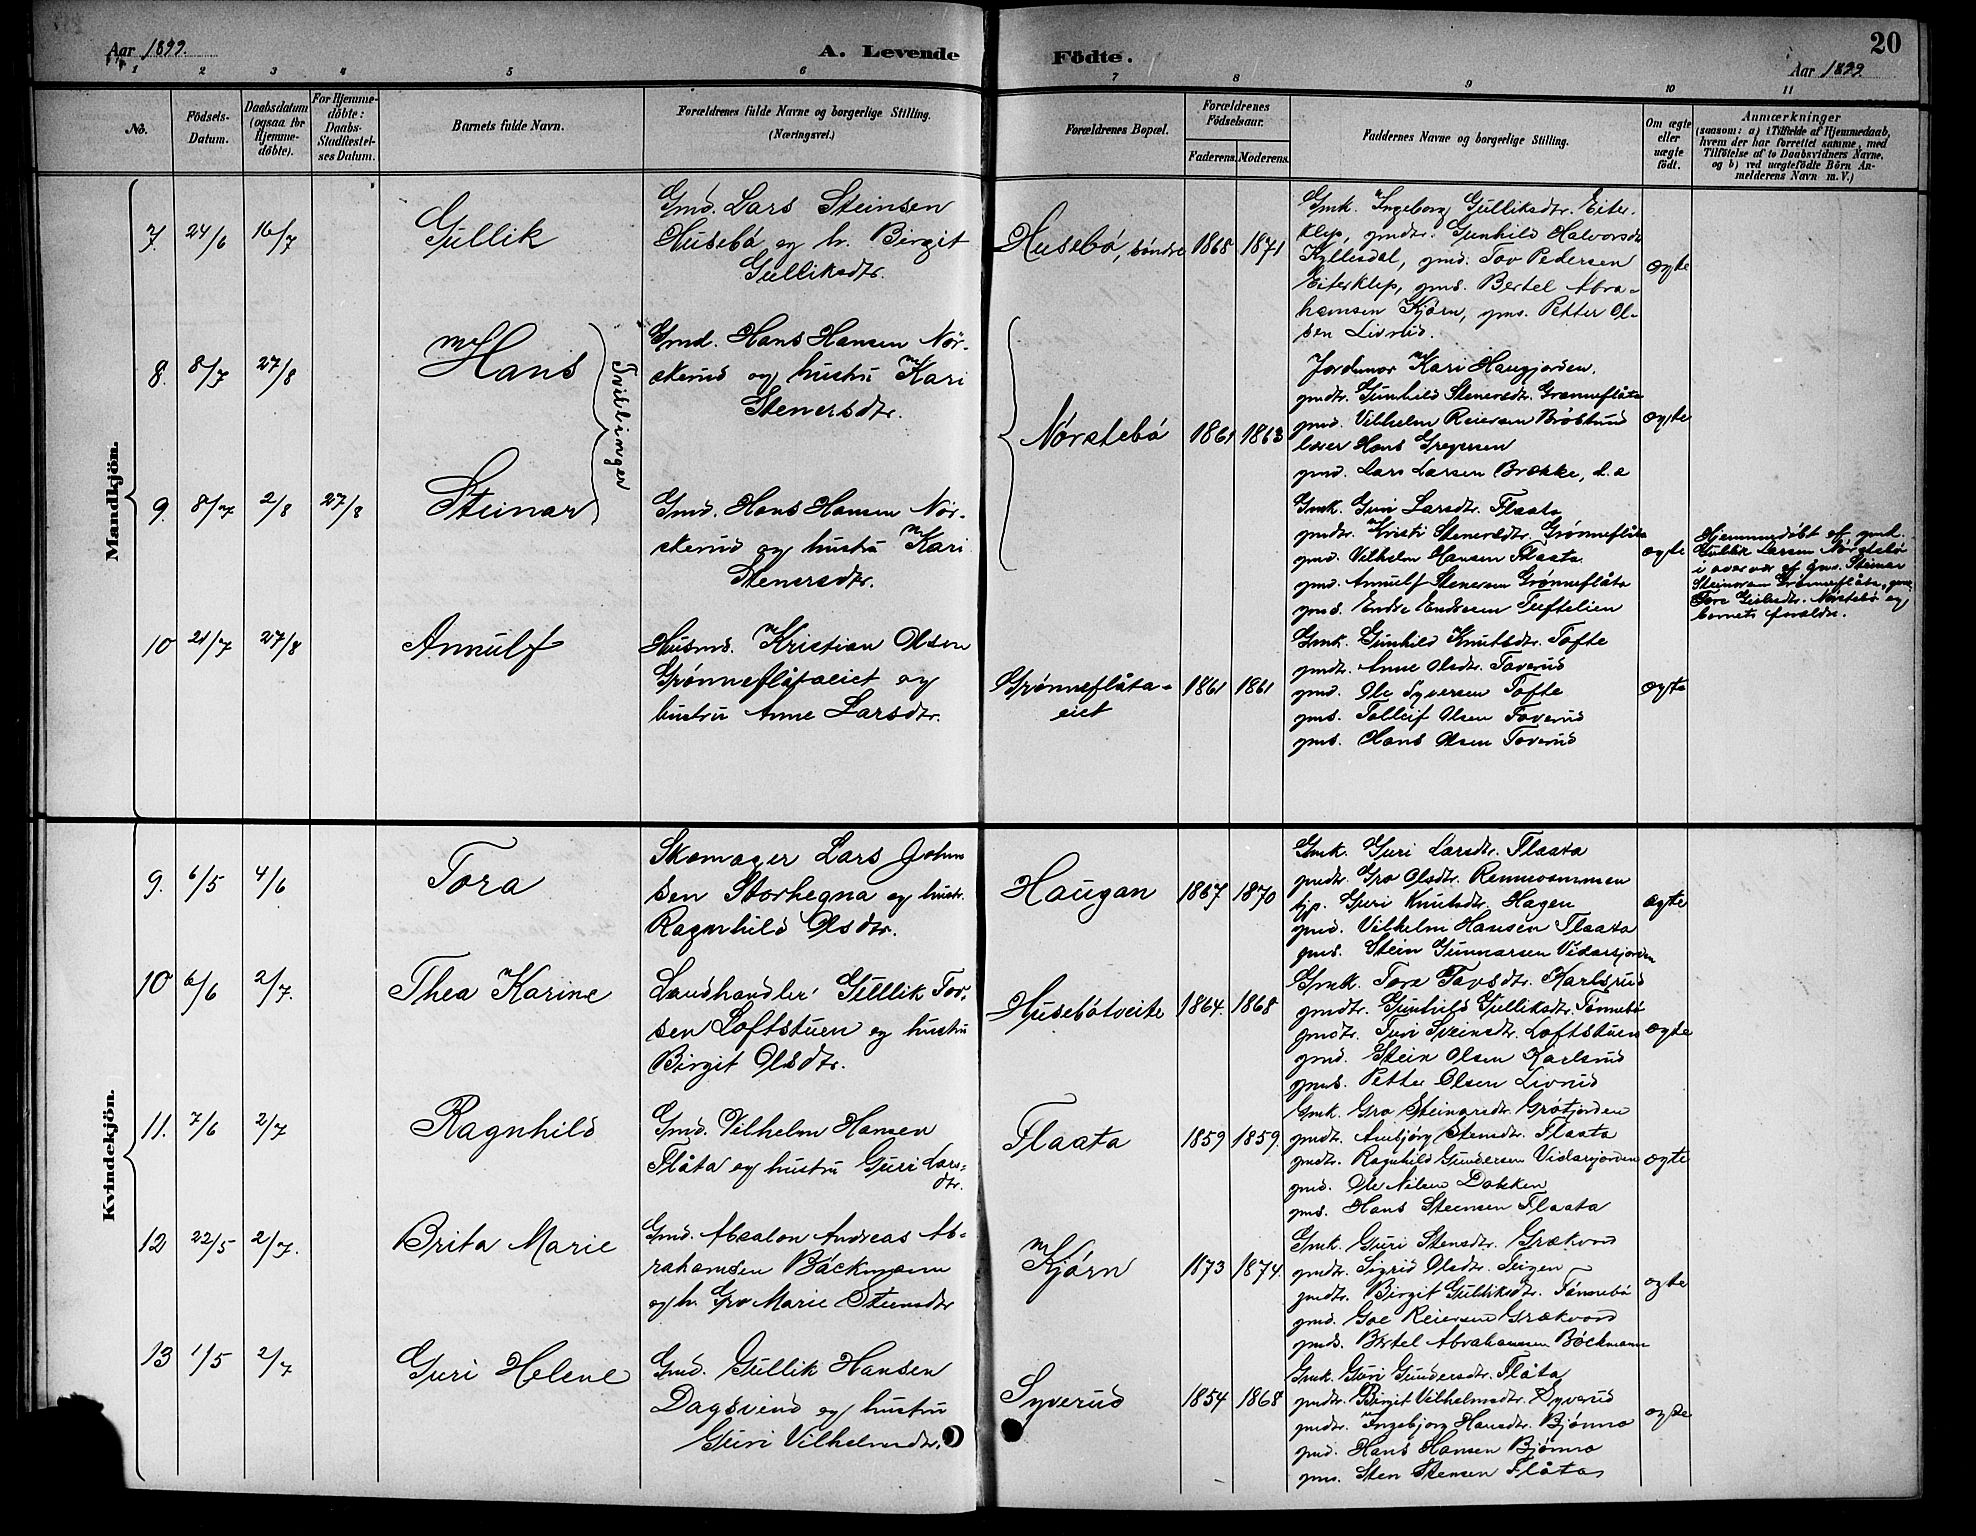 Aar 1899.
A. Levende
Födte.
20
Aar 1899
1 2 3 4 5 6 7 8 9 10 11
No.
Födsels-
Datum.
Daabsdatum
(ogsaa for
Hjemme-
döbte).
For Hjemme-
döbte:
Daabs-
Stadfæstel-
ses Datum.
Barnets fulde Navn.
Forældrenes fulde Navne og borgerlige Stilling.
(Næringsvei.)
Forældrenes Bopæl.
Forældrenes
Födselsaar.
Faderens. Moderens.
Faddernes Navne og borgerlige Stilling.
Om ægte
eller
uægte
födt.
Anmærkninger
(saasom: a) i Tilfælde af Hjemmedaab,
hvem der har forrettet samme, med
Tilföielse af to Daabsvidners Navne,
og b) ved uægtefödte Börn An-
melderens Navn m. V.)
Mandkjön.
7. 24/6 16/7
Gullik
Gmd. Lars Steinsen
Husebö og h. Birgit
Gulliksdtr.
Husebö, bönde
1868 1871
Gmk. Ingeborg Gulliksdtr. Eiter-
klep, gmdtr. Gunhild Halvorsdtr
Kyllesdal, gmd. Tov Pedersen
Eiterklep, gms. Bertel Abra-
hamsen Kjörn, gms. Petter Ol-
sen Livrud.
ægte
8. 8/7 27/8
Hans
Tvillinger
Gmd. Hans Hansen Nör-
skerud og hustru Kari
Stenersdtr.
Nörstebö
1861 1863
Jordmor Kari Haugjorden.
gmdtr. Gunhild Stenersdtr. Grønneflåta
gmd. Vilhelm Reiersen Bröstrud
lærer Hans Gregersen
gmd. Lars Larsen Brække, d.æ
ægte
9. 8/7 2/8 27/8
Steinar
Gmd. Hans Hansen Nör-
skerud og hustru Kari
Stenersdtr.
Gmk. Guri Larsdtr. Flaata
gmdtr. Kristi Stenersdtr. Grønneflåta
gmd. Vilhelm Hansen Flaata
gmd. Arnulf Stenersen Grønneflåta
gms. Endre Endresen Tuftelien
ægte
Hjemmedöbt af gmd.
Gullik Larsen Nörstebö
i overvær af gms. Steinar
Steinarsen Grønneflåta, gmk
Tore Nörstebö og
barnets forældre.
10 21/7 27/8
Arnulf
Husms. Kristian Olsen
Grønneflåtaeiet og
hustru Anne Larsdtr.
Grønneflåta-
eiet
1861 1861
Gmk. Gunhild Knutsdtr. Tofte
gmdtr. Anne Olsdtr. Taverud
gmd. Ole Syversen Tofte
gms. Tolleif Olsen Taverud
gms. Hans Olsen Taverud
ægte
Kvindekjön.
9. 6/5 4/6
Tora
Skomager Lars John
sen Storhegna og hustr.
Ragnhild Olsdtr.
Haugan
1867 1870
Gmk. Guri Larsdtr. Flaata
gmdtr. Gro Olsdtr.
tjp. Guri Knutsdtr. Hagen
gmd. Vilhelm Hansen Flaata
gms. Stein Gunnarsen Vidarsjorden
ægte
10 6/6 2/7.
Thea Karine
Landhandler Gullik Tor-
sen Loftstuen og hustru
Birgit Olsdtr.
Husebötveite
1864. 1868
Gmk. Tore Tovsdtr. Karlsrud
gmdtr. Gunhild Gulliksdtr. Tönnebö
gmdtr. Turi Sveinsdtr. Loftstuen
gmd. Stein Olsen Karlsrud
gms. Petter Olsen Livrud
ægte
11. 7/6 2/7
Ragnhild
Gmd. Vilhelm Hansen
Flåta og hustru Guri Lars-
dtr.
Flaata
1859 1859.
Gmk. Gro Steinarsdtr. Grötjorden
gmdtr. Ambjörg Stensdtr. Flaata
gmdtr. Ragnhild Gundersen Vidarsjorden
gmd. Ole Nilsen Dokken
gms. Hans Steensen Flaata
ægte
12 22/5 2/7.
Brita Marie
Gmd. Absalon Andreas Ab-
rahamsen Böckmann
og h. Gro Marie Steensdtr
Kjörn
1873 1874.
Gmk. Guri Stensdtr. Grækvord
gmdtr. Sigrid Olsdtr. Teigen
gmdtr. Birgit Gulliksdtr. Tönnebö
gmd. Goe Reiersen Grækvord
gmds. Bertel Abrahamsen Böckmann
ægte
13 1/5 2/7
Guri Helene
Gmd. Gullik Hansen
Dagsvend og hustru
Guri Vilhelmsdtr.
Syverud
1854 1868
Gmk. Guri Gundersdtr. Flåta
gmdtr. Birgit Vilhelmsdtr. Syverud
gmdtr. Ingebjorg Hansdtr. Bjönno
gmd. Hans Hansen Bjönno
gms. Sten Stensen Flåta
ægte